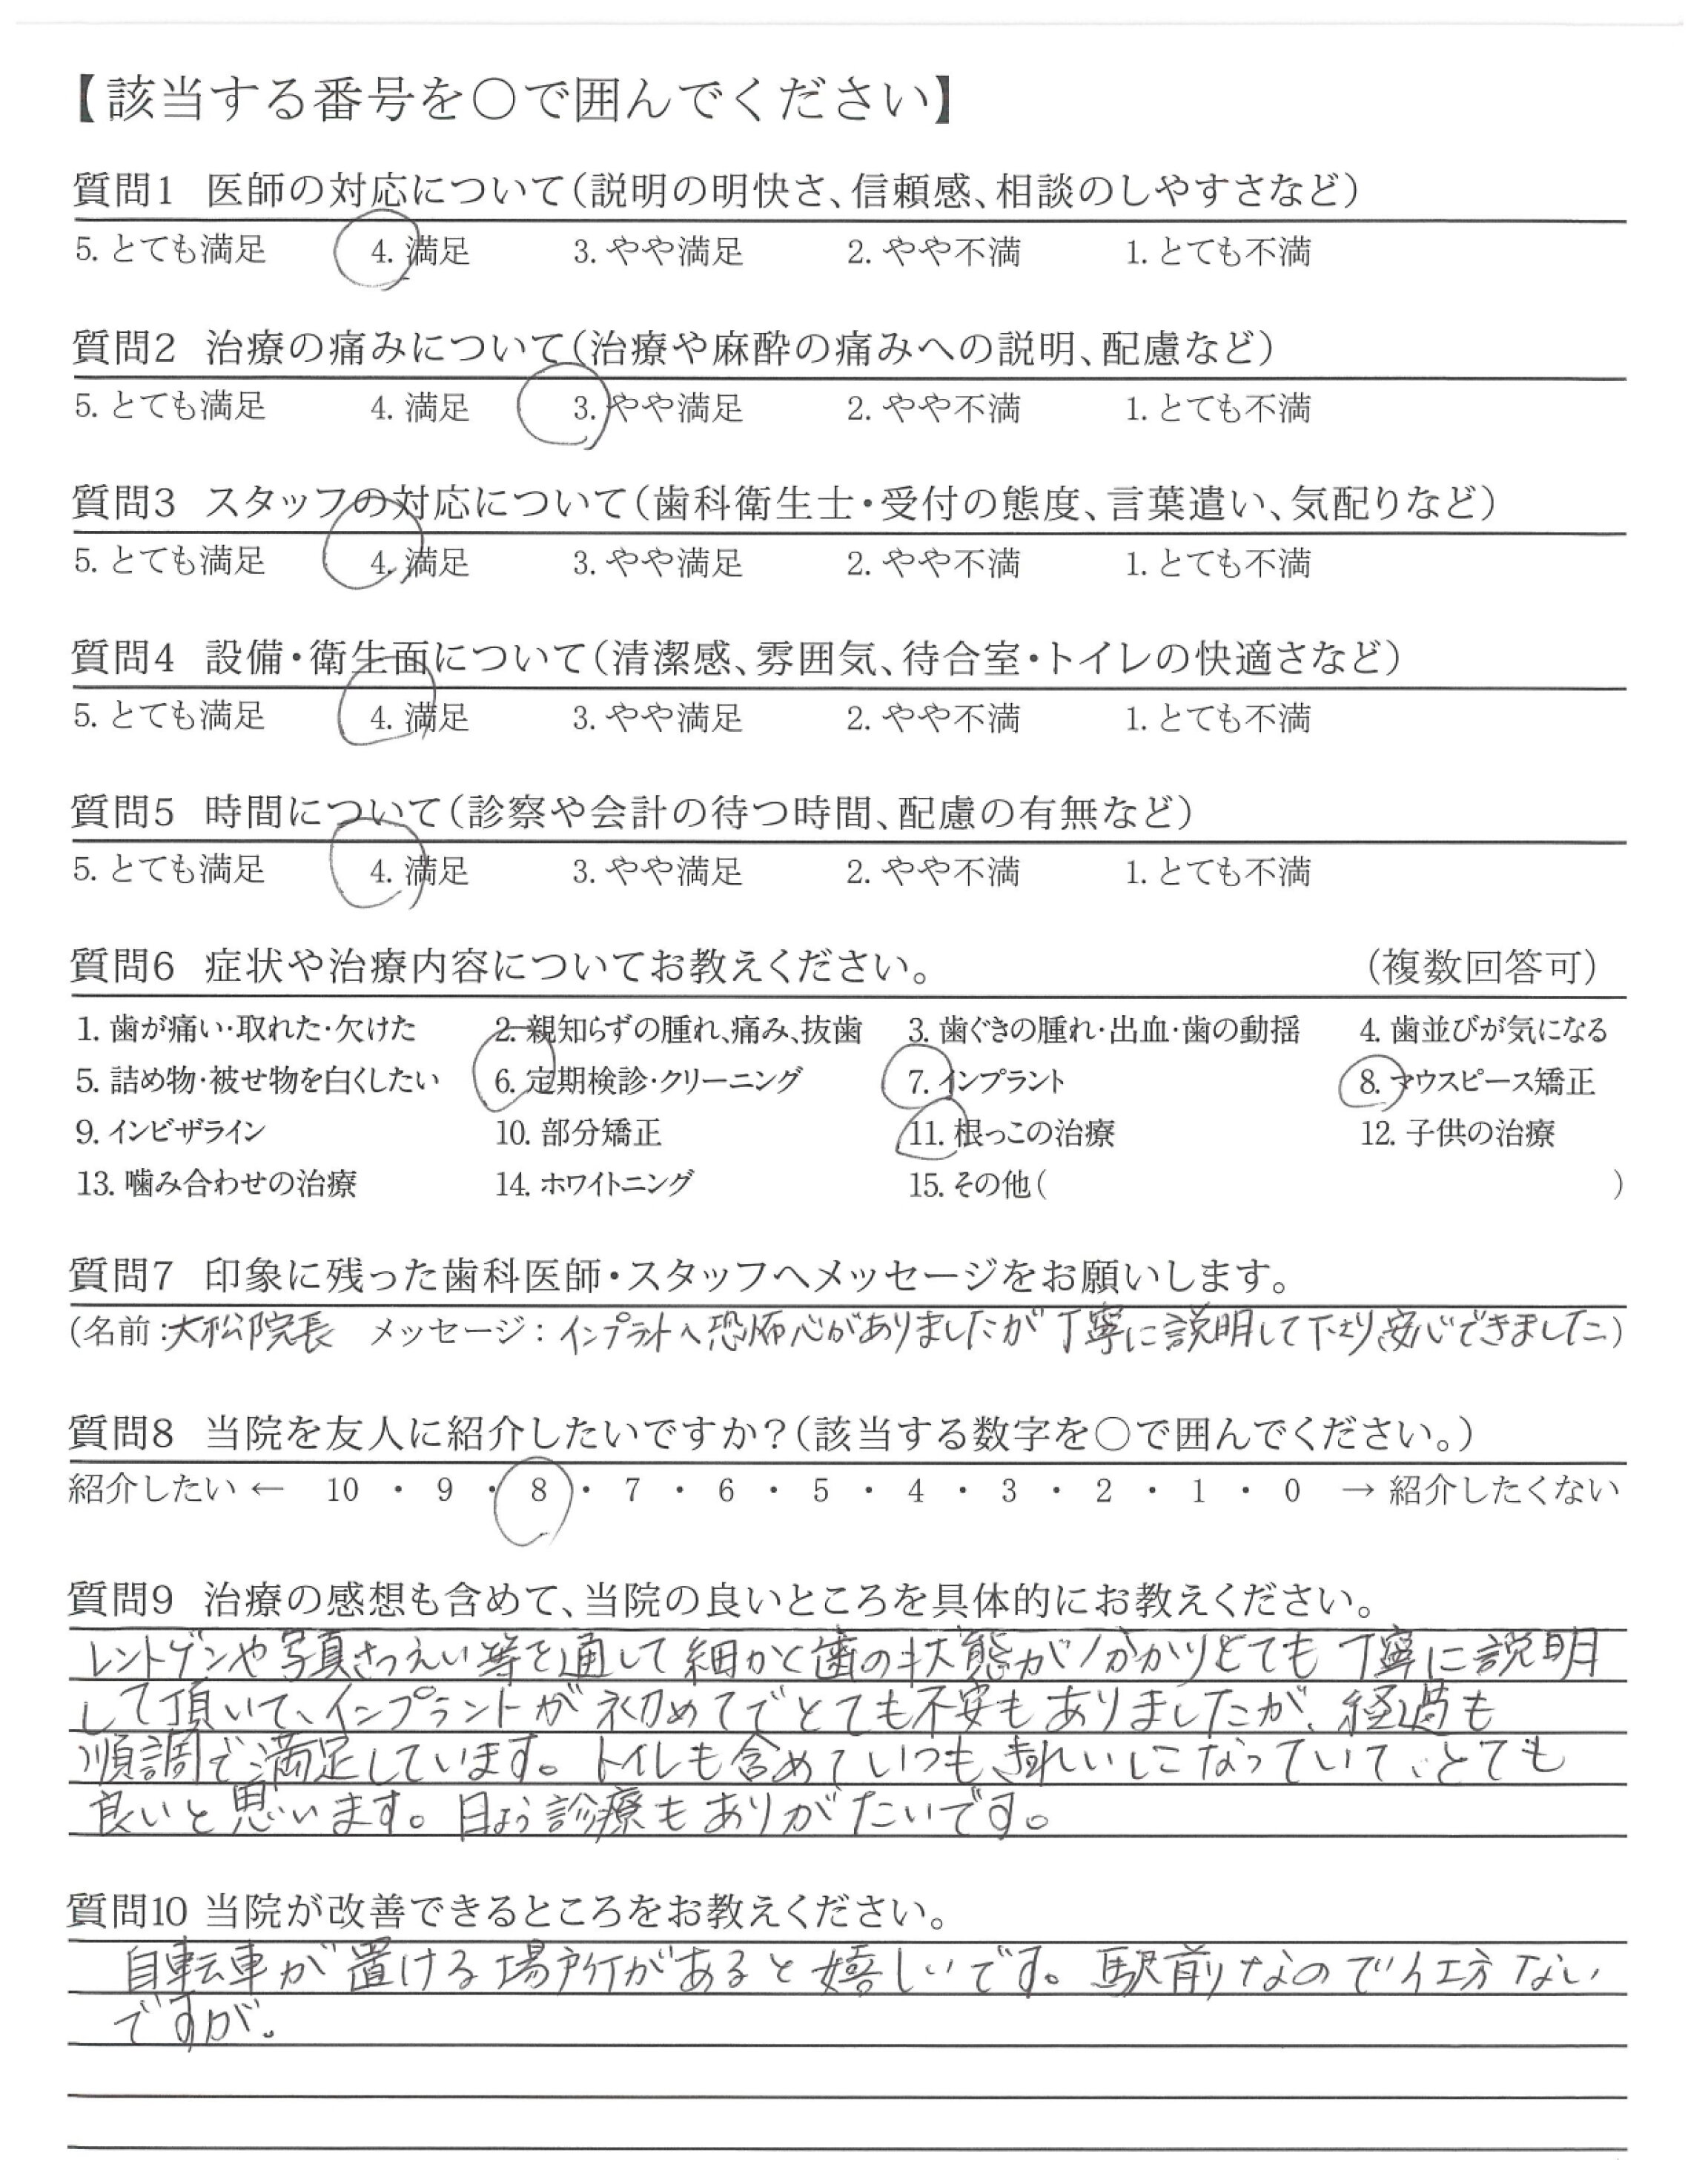 【該当する番号を○で囲んでください】
質問1 医師の対応について(説明の明快さ、信頼感、相談のしやすさなど)
5. とても満足 4. 満足 3. やや満足 2. やや不満 1. とても不満
質問2 治療の痛みについて(治療や麻酔の痛みへの説明、配慮など)
5. とても満足 4. 満足 3. やや満足 2. やや不満 1. とても不満
質問3 スタッフの対応について(歯科衛生士・受付の態度、言葉遣い、気配りなど)
5. とても満足 4. 満足 3. やや満足 2. やや不満 1. とても不満
質問4 設備・衛生面について(清潔感、雰囲気、待合室・トイレの快適さなど)
5. とても満足 4. 満足 3. やや満足 2. やや不満 1. とても不満
質問5 時間について(診察や会計の待つ時間、配慮の有無など)
5. とても満足 4. 満足 3. やや満足 2. やや不満 1. とても不満
質問6 症状や治療内容についてお教えください。 (複数回答可)
1. 歯が痛い・取れた・欠けた 2. 親知らずの腫れ、痛み、抜歯 3. 歯ぐきの腫れ・出血・歯の動揺 4. 歯並びが気になる
5. 詰め物・被せ物を白くしたい 6. 定期検診・クリーニング 7. インプラント 8. マウスピース矯正
9. インビザライン 10. 部分矯正 11. 根っこの治療 12. 子供の治療
13. 噛み合わせの治療 14. ホワイトニング 15. その他( )
質問7 印象に残った歯科医師・スタッフへメッセージをお願いします。
(名前:大松院長 メッセージ:インプラントへ恐怖心がありましたが丁寧に説明して下さり安心できました)
質問8 当院を友人に紹介したいですか?(該当する数字を○で囲んでください。)
紹介したい ← 10 ・ 9 ・ 8 ・ 7 ・ 6 ・ 5 ・ 4 ・ 3 ・ 2 ・ 1 ・ 0 → 紹介したくない
質問9 治療の感想も含めて、当院の良いところを具体的にお教えください。
レントゲンや写真さつえい等を通して細かく歯の状態が分かりとても丁寧に説明
して頂いて、インプラントが初めてでとても不安もありましたが、経過も
順調で満足しています。トイレも含めていつもきれいになっていて、とても
良いと思います。日よう診療もありがたいです。
質問10 当院が改善できるところをお教えください。
自転車が置ける場所があると嬉しいです。駅前なので仕方ない
ですが。